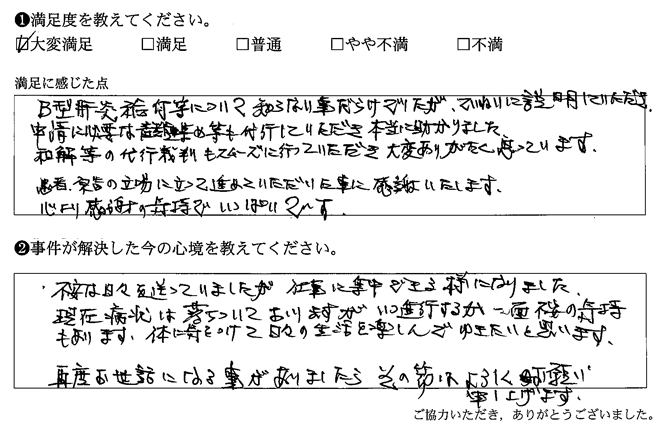 ❶満足度を教えてください。
☑大変満足 □満足 □普通 □やや不満 □不満
満足に感じた点
B型肝炎給付等について わからない事だらけでしたが、ていねいに説明していただき
申請に必要な書類集め等も代行していただき本当に助かりました
和解等の代行裁判もスムーズに行っていただき大変ありがたく思っています。
患者、原告の立場に立って進めていただいた事に感謝いたします。
心より感謝の気持でいっぱいです。
❷事件が解決した今の心境を教えてください。
・不安な日々を送っていましたが 仕事に集中できる様になりました。
現在病状は落ちついておりますがいつ進行するか一面不安の気持
もあります。体に気をつけて日々の生活を楽しんでゆきたいと思います。
再度お世話になる事がありましたらその節はよろしくお願い
申し上げます。
ご協力いただき，ありがとうございました。